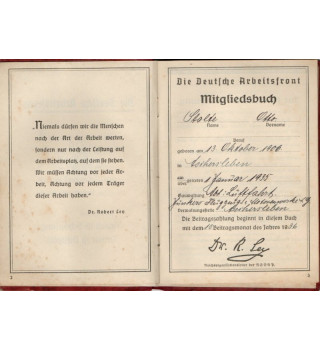 „Niemals dürfen wir die Menschen
nach der Art der Arbeit werten,
sondern nur nach der Leistung auf
dem Arbeitsplatz, auf dem sie stehen.
Wir müssen Achtung vor jeder Ar-
beit, Achtung vor jedem Träger
dieser Arbeit haben.“
Dr. Robert Ley
2
Die Deutsche Arbeitsfront
Mitgliedsbuch
Stolte Otto
Name Vorname
Beruf
geboren am 13 Oktober
Aschersleben
1 Januar 1935
Abt. Luftfahrt
Junkers Flugzeug-
Verwaltungsstelle Aschersleben
Die Beitragszahlung beginnt in diesem Buch
mit dem Beitragsmonat des Jahres 1936
Dr. R. Ley
Reichsorganisationsleiter der NSDAP.
3